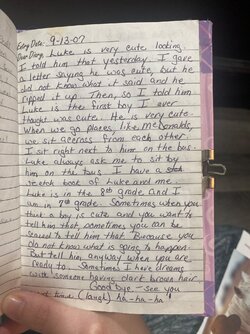 Entry Date: 9-13-07
Dear Diary, Luke is very cute looking.
I told him that yesterday. I gave
a letter saying he was cute, but he
did not know what it said and he
ripped it up. Then, so I told him
Luke is the first boy I ever
thought was cute. He is very cute.
When we go places, like McDonalds,
we sit aceross from each other.
I sit right next to him on the bus.
Luke always ask me to sit by
him on the bus. I have a
sketch book of Luke and me.
Luke is in the 8th grade and I
am in 7th grade. Sometimes when you
think a boy is cute and you want to
tell him that, sometimes you can be
scared to tell him that. Because you
do not know what is going to happen.
But tell him anyway when you are
ready to. Sometimes I have dreams
with someone having dark brown hair.
Good bye. See you
next time. (laugh) ha-ha-ha